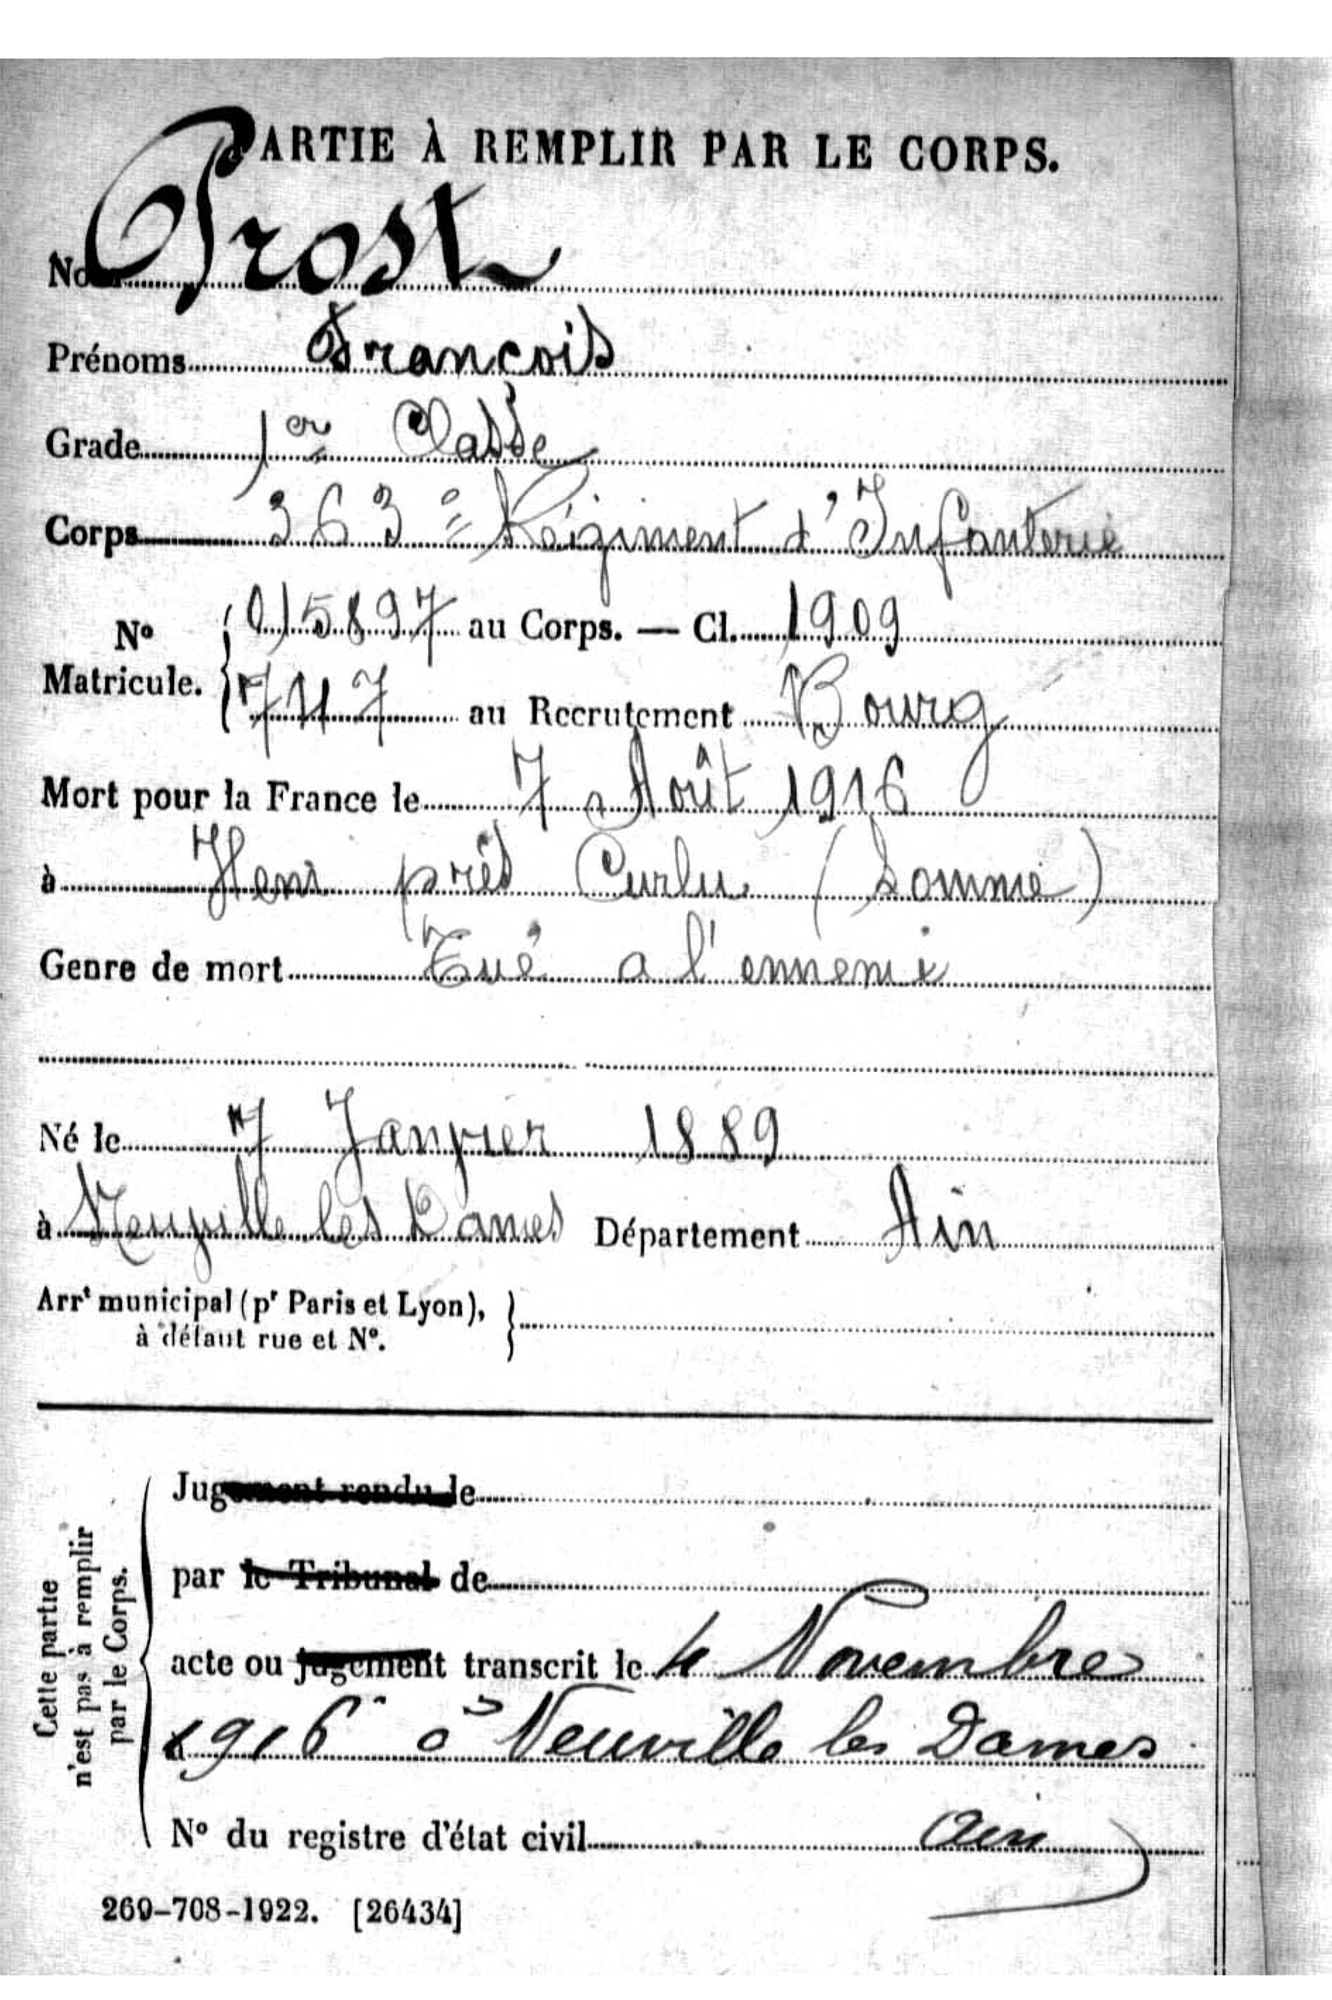 PARTIE À REMPLIR PAR LE CORPS.
Nom Prost
Prénoms François
Grade 1er Classe
Corps 363e Régiment d'Infanterie
No 015897 au Corps. — Cl. 1909
Matricule. 747 au Recrutement Bourg
Mort pour la France le 7 Août 1916
à Hem près Curlu (Somme)
Genre de mort Tué a l'ennemi
Né le 7 Janvier 1889
à Neuville les Dames Département Ain
Arrt municipal (pr Paris et Lyon),
à défaut rue et No.
Cette partie
n'est pas à remplir
par le Corps.
Jugement rendu le
par le Tribunal de
acte ou jugement transcrit le 4 Novembre
1916 à Neuville les Dames
No du registre d'état civil Ain
269-708-1922. [26434]